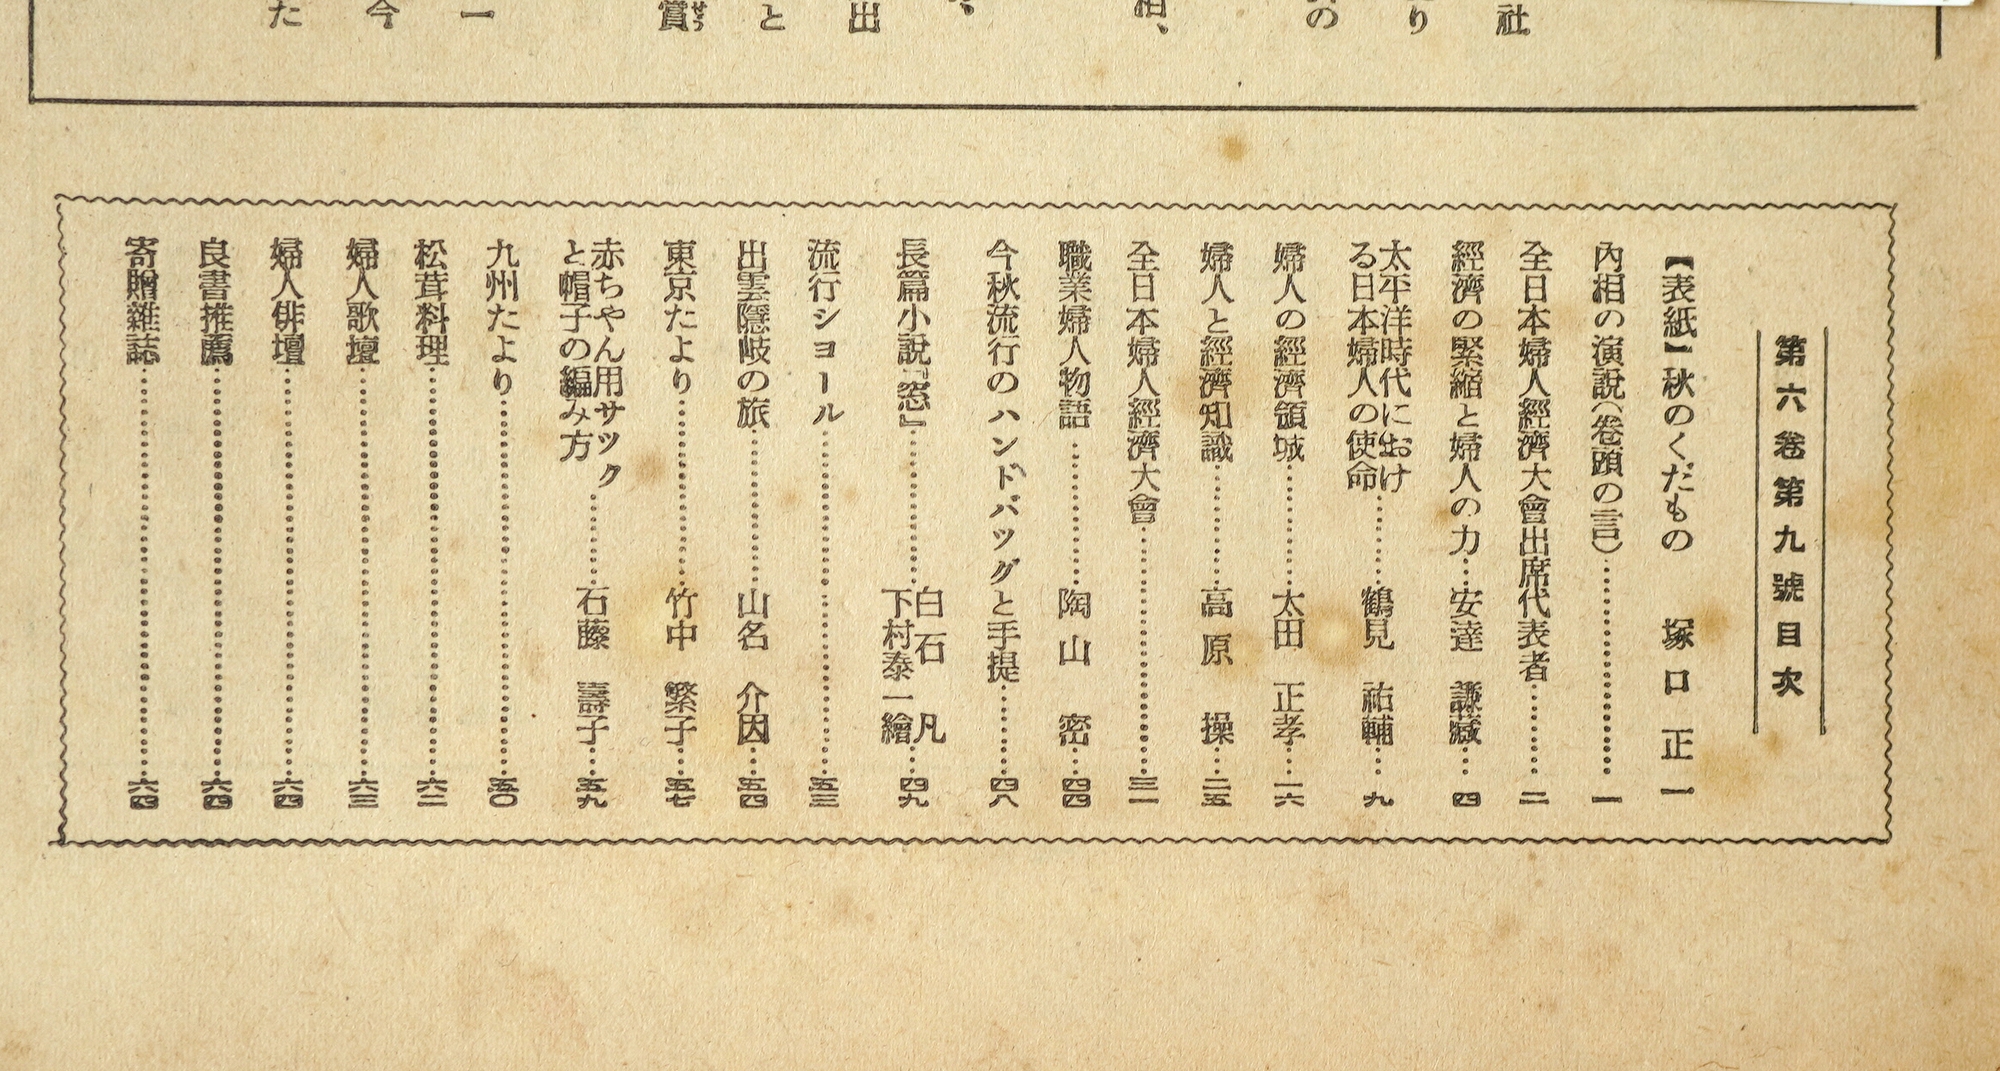 社
り
の
相、
出
と
賞
一
今
た
第六卷第九號目次
【表紙】秋のくだもの 塚口正一
內相の演說(卷頭の言)………一
全日本婦人經濟大會出席代表者………二
經濟の緊縮と婦人の力…安達 謙藏…四
太平洋時代におけ
る日本婦人の使命………鶴見 祐輔…九
婦人の經濟領域………太田 正孝…一六
婦人と經濟知識………高原 操…二五
全日本婦人經濟大會………三一
職業婦人物語………陶山 密…四四
今秋流行のハンドバッグと手提………四八
長篇小說『窓』………白石 凡
下村泰一繪…四九
流行ショール………五三
出雲隱岐の旅………山名 介因…五四
東京たより………竹中 繁子…五七
赤ちやん用サツク
と帽子の編み方………石藤 壽子…五九
九州たより………五〇
松茸料理………六二
婦人歌壇………六三
婦人俳壇………六四
良書推薦………六四
寄贈雜誌………六四